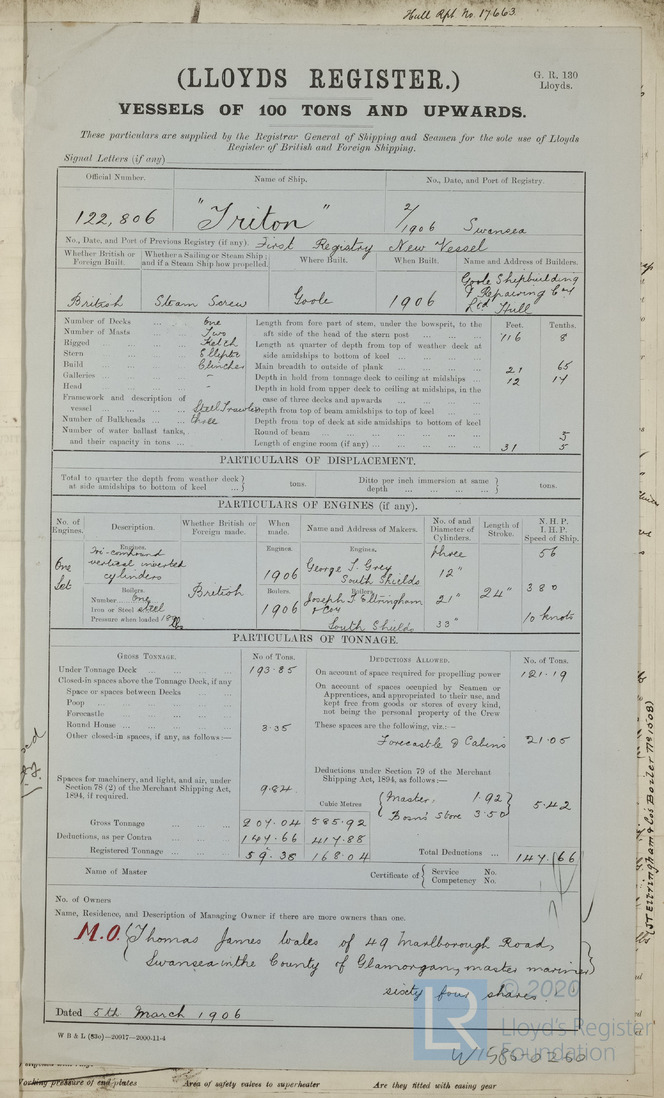 Hull Rpt. No. 17663.
(LLOYDS REGISTER.)
G. R. 130
Lloyds.
VESSELS OF 100 TONS AND UPWARDS.
These particulars are supplied by the Registrar General of Shipping and Seamen for the sole use of Lloyds
Register of British and Foreign Shipping.
Signal Letters (if any)
Official Number. Name of Ship. No., Date, and Port of Registry.
122,806 "Triton" 2/1906 Swansea
No., Date, and Port of Previous Registry (if any). First Registry New Vessel
Whether British or Foreign Built. Whether a Sailing or Steam Ship; and if a Steam Ship how propelled. Where Built. When Built. Name and Address of Builders.
British Steam Screw Goole 1906 Goole Shipbuilding & Repairing Coy Ltd Hull
Number of Decks ... ... One
Number of Masts ... ... Two
Rigged ... ... Ketch
Stern ... ... Elliptic
Build ... ... Clincher
Galleries ... ... -
Head ... ... -
Framework and description of
vessel ... ... Steel Trawler
Number of Bulkheads ... ... three
Number of water ballast tanks,
and their capacity in tons ...
Feet. Tenths.
Length from fore part of stem, under the bowsprit, to the
aft side of the head of the stern post ... 116 8
Length at quarter of depth from top of weather deck at
side amidships to bottom of keel ...
Main breadth to outside of plank ... 21 65
Depth in hold from tonnage deck to ceiling at midships ... 12 14
Depth in hold from upper deck to ceiling at midships, in the
case of three decks and upwards ...
Depth from top of beam amidships to top of keel
Depth from top of deck at side amidships to bottom of keel
Round of beam ... 5
Length of engine room (if any) ... 31 5
PARTICULARS OF DISPLACEMENT.
Total to quarter the depth from weather deck
at side amidships to bottom of keel ... tons.
Ditto per inch immersion at same
depth ... tons.
PARTICULARS OF ENGINES (if any).
No. of Engines. Description. Whether British or Foreign made. When made. Name and Address of Makers. No. of and Diameter of Cylinders. Length of Stroke. N. H. P. I. H. P. Speed of Ship.
One Set
Engines.
Tri-compound
vertical inverted
cylinders
Boilers.
Number ... One
Iron or Steel steel
Pressure when loaded lbs
British
Engines.
1906
Boilers.
1906
Engines.
George T. Grey
South Shields
Boilers.
Joseph T. Eltringham
& Coy
South Shields
three
12"
21"
33"
24"
56
380
10 knots
PARTICULARS OF TONNAGE.
GROSS TONNAGE. No of Tons.
Under Tonnage Deck ... 193.85
Closed-in spaces above the Tonnage Deck, if any
Space or spaces between Decks ...
Poop ...
Forecastle ...
Round House ... 3.35
Other closed-in spaces, if any, as follows:—
Spaces for machinery, and light, and air, under
Section 78 (2) of the Merchant Shipping Act,
1894, if required. 9.84
Cubic Metres
Gross Tonnage ... 207.04 585.92
Deductions, as per Contra ... 147.66 417.88
Registered Tonnage ... 59.38 168.04
DEDUCTIONS ALLOWED. No. of Tons.
On account of space required for propelling power 121.19
On account of spaces occupied by Seamen or
Apprentices, and appropriated to their use, and
kept free from goods or stores of every kind,
not being the personal property of the Crew
These spaces are the following, viz.:—
Forecastle & Cabins 21.05
Deductions under Section 79 of the Merchant
Shipping Act, 1894, as follows:—
Master, 1.92
Bosn's Store 3.50
5.42
Total Deductions ... 147.66
Name of Master
Certificate of Service No.
Competency No.
No. of Owners
Name, Residence, and Description of Managing Owner if there are more owners than one.
M.O. Thomas James Wales of 49 Marlborough Road,
Swansea in the County of Glamorgan, master mariner
sixty four shares.
Dated 5th March 1906
W B & L (83o)—20917—2000-11-4
© 2020
LR
Lloyd's Register
Foundation
W1586-0260
(JT Eltringham & Cos Boiler No 1508)
Working pressure of end plates
Area of safety valves to superheater
Are they fitted with easing gear